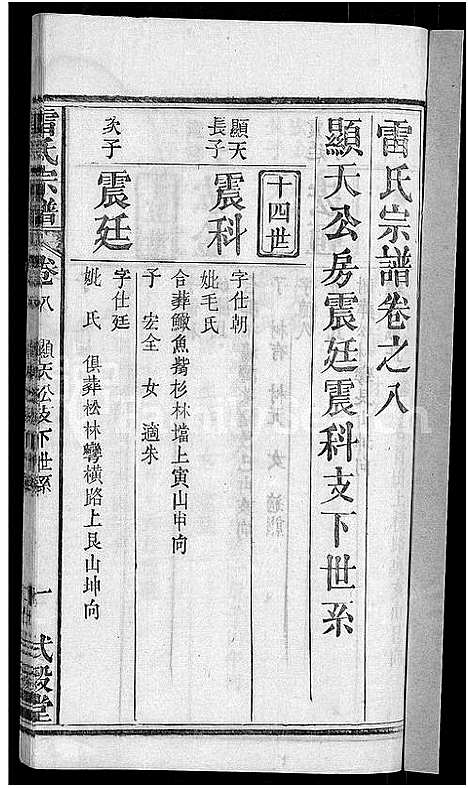 雷氏宗譜卷之八
顯天公房震廷震科支下世系
十四世
顯天長子
震科
字仕朝
妣毛氏
合葬鱖魚觜杉林壋上寅山申向
子 宏全 女 適朱
次子
震廷
字仕廷
妣 氏 俱葬松林彎橫路上艮山坤向
雷氏宗譜
卷八 顯天公支下世系
一
式穀堂